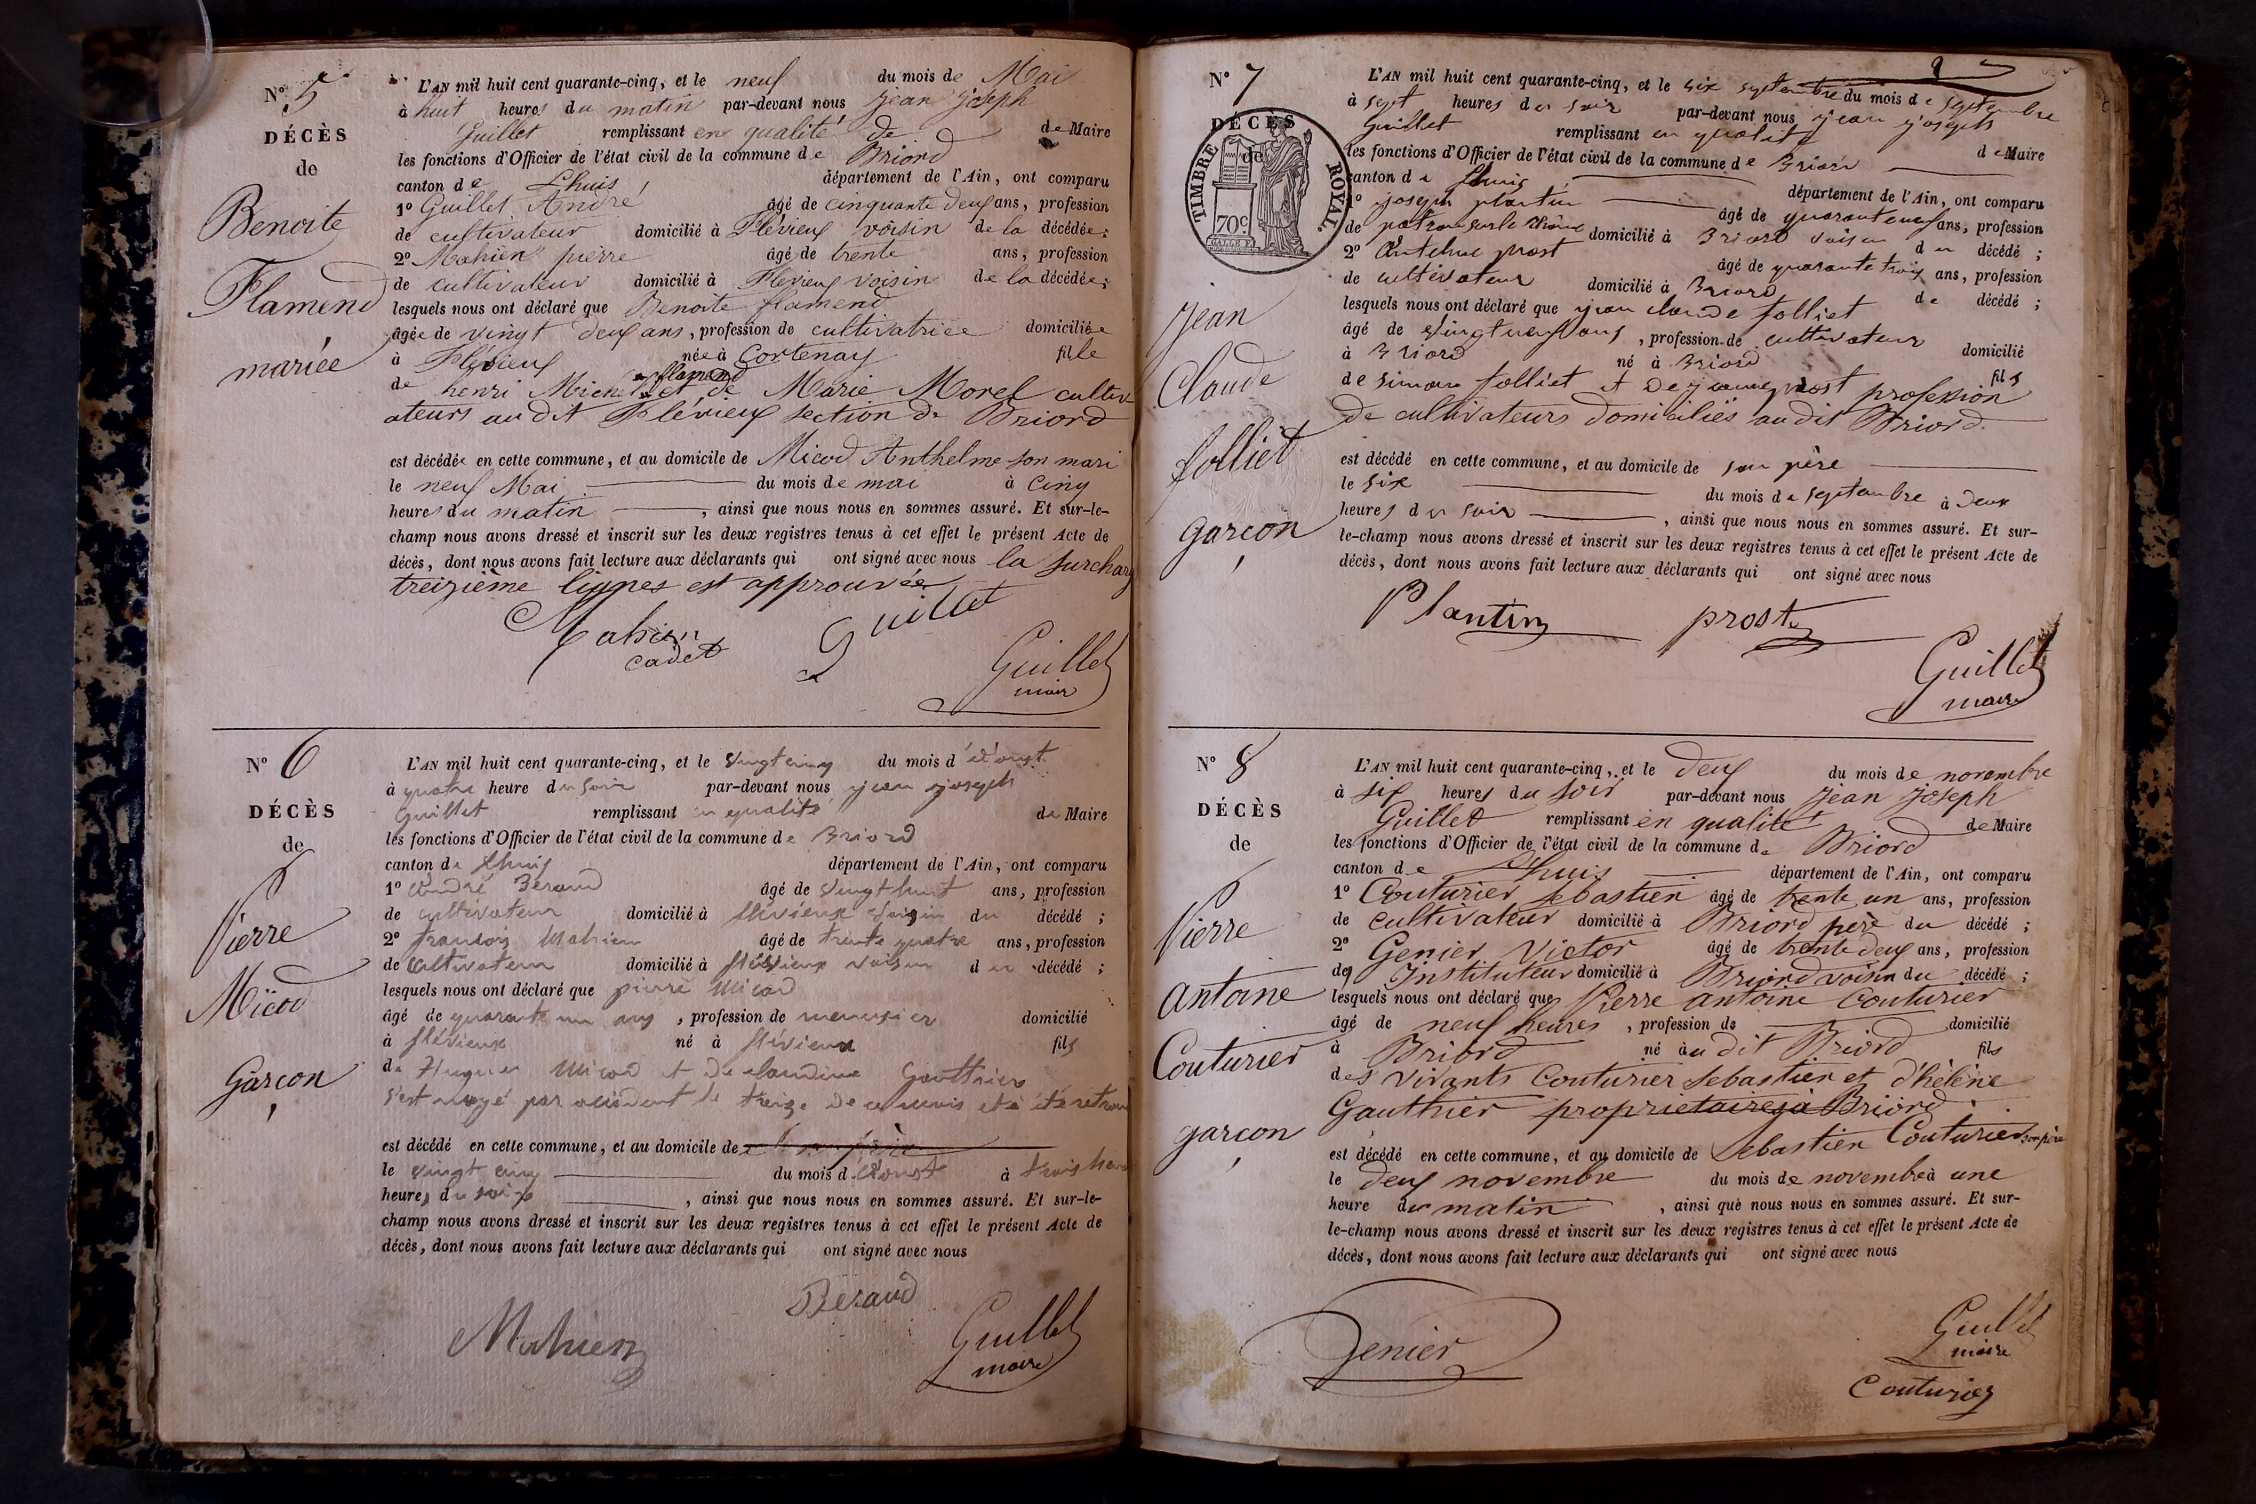 N° 5
DÉCÈS
de
Benoite
Flamend
mariée
L'AN mil huit cent quarante-cinq, et le neuf du mois de Mai
à huit heures du matin par-devant nous Jean Joseph
Guillet remplissant en qualité de de Maire
les fonctions d'Officier de l'état civil de la commune de Briord
canton de Lhuis département de l'Ain, ont comparu
1° Guillet André âgé de cinquante deux ans, profession
de cultivateur domicilié à Flévieux voisin de la décédée ;
2° Mahien pierre âgé de trente ans, profession
de cultivateur domicilié à Flévieux voisin de la décédée ;
lesquels nous ont déclaré que Benoite flamend
âgée de vingt deux ans, profession de cultivatrice domiciliée
à Flévieux née à Cortenay fille
de henri Michel flamend et de Marie Morel cultiv
ateurs au dit Flévieux section de Briord
est décédée en cette commune, et au domicile de Micod Anthelme son mari
le neuf Mai du mois de mai à cinq
heures du matin, ainsi que nous nous en sommes assuré. Et sur-le-
champ nous avons dressé et inscrit sur les deux registres tenus à cet effet le présent Acte de
décès, dont nous avons fait lecture aux déclarants qui ont signé avec nous la surcharg
treizième lignes est approuvée
Mahien
cadet
Guillet
Guillet
maire
N° 6
DÉCÈS
de
Pierre
Micod
Garçon
L'AN mil huit cent quarante-cinq, et le vingt cinq du mois d'août
à quatre heure du soir par-devant nous jean joseph
Guillet remplissant en qualité de Maire
les fonctions d'Officier de l'état civil de la commune de Briord
canton de Lhuis département de l'Ain, ont comparu
1° André Beraud âgé de vingt huit ans, profession
de cultivateur domicilié à flévieux voisin du décédé ;
2° françois Mahien âgé de trente quatre ans, profession
de cultivateur domicilié à flévieux voisin du décédé ;
lesquels nous ont déclaré que pierre Micod
âgé de quarante un ans, profession de menusier domicilié
à flévieux né à flévieux fils
de Hugues Micod et de claudine Gauthier
s'est noyé par accident le treize de ce mois et a été retrouv
est décédé en cette commune, et au domicile de
le vingt cinq du mois d'Aoust à trois heur
heures du soir, ainsi que nous nous en sommes assuré. Et sur-le-
champ nous avons dressé et inscrit sur les deux registres tenus à cet effet le présent Acte de
décès, dont nous avons fait lecture aux déclarants qui ont signé avec nous
Mahien
Beraud
Guillet
maire
N° 7
DÉCÈS
de
TIMBRE ROYAL
70c
jean
Claude
folliet
garçon
L'AN mil huit cent quarante-cinq, et le six septembre du mois de septembre
à sept heures du soir par-devant nous jean joseph
Guillet remplissant en qualité de Maire
les fonctions d'Officier de l'état civil de la commune de Briord
canton de Lhuis département de l'Ain, ont comparu
1° joseph plantin âgé de quarante neuf ans, profession
de patron sur le Rhône domicilié à Briord voisin du décédé ;
2° Antelme prost âgé de quarante trois ans, profession
de cultivateur domicilié à Briord de décédé ;
lesquels nous ont déclaré que jean claude folliet
âgé de vingt neuf ans, profession de cultivateur domicilié
à Briord né à Briord fils
de simon folliet et de jeanne prost profession
de cultivateurs domiciliés au dit Briord.
est décédé en cette commune, et au domicile de son père
le six du mois de septembre à deux
heures du soir, ainsi que nous nous en sommes assuré. Et sur-
le-champ nous avons dressé et inscrit sur les deux registres tenus à cet effet le présent Acte de
décès, dont nous avons fait lecture aux déclarants qui ont signé avec nous
Plantin
prost
Guillet
maire
N° 8
DÉCÈS
de
Pierre
Antoine
Couturier
garcon
L'AN mil huit cent quarante-cinq, et le deux du mois de novembre
à six heures du soir par-devant nous Jean Joseph
Guillet remplissant en qualité de Maire
les fonctions d'Officier de l'état civil de la commune de Briord
canton de Lhuis département de l'Ain, ont comparu
1° Couturier Sebastien âgé de trente un ans, profession
de cultivateur domicilié à Briord père du décédé ;
2° Genier Victor âgé de trente deux ans, profession
de Instituteur domicilié à Briord voisin du décédé ;
lesquels nous ont déclaré que Pierre antoine Couturier
âgé de neuf heures, profession de domicilié
à Briord né au dit Briord fils
des vivants Couturier Sebastien et d'hélène
Gauthier propriétaires à Briord.
est décédé en cette commune, et au domicile de Sebastien Couturier son père
le deux novembre du mois de novembre à une
heure du matin, ainsi que nous nous en sommes assuré. Et sur-
le-champ nous avons dressé et inscrit sur les deux registres tenus à cet effet le présent Acte de
décès, dont nous avons fait lecture aux déclarants qui ont signé avec nous
Genier
Guillet
maire
Couturier